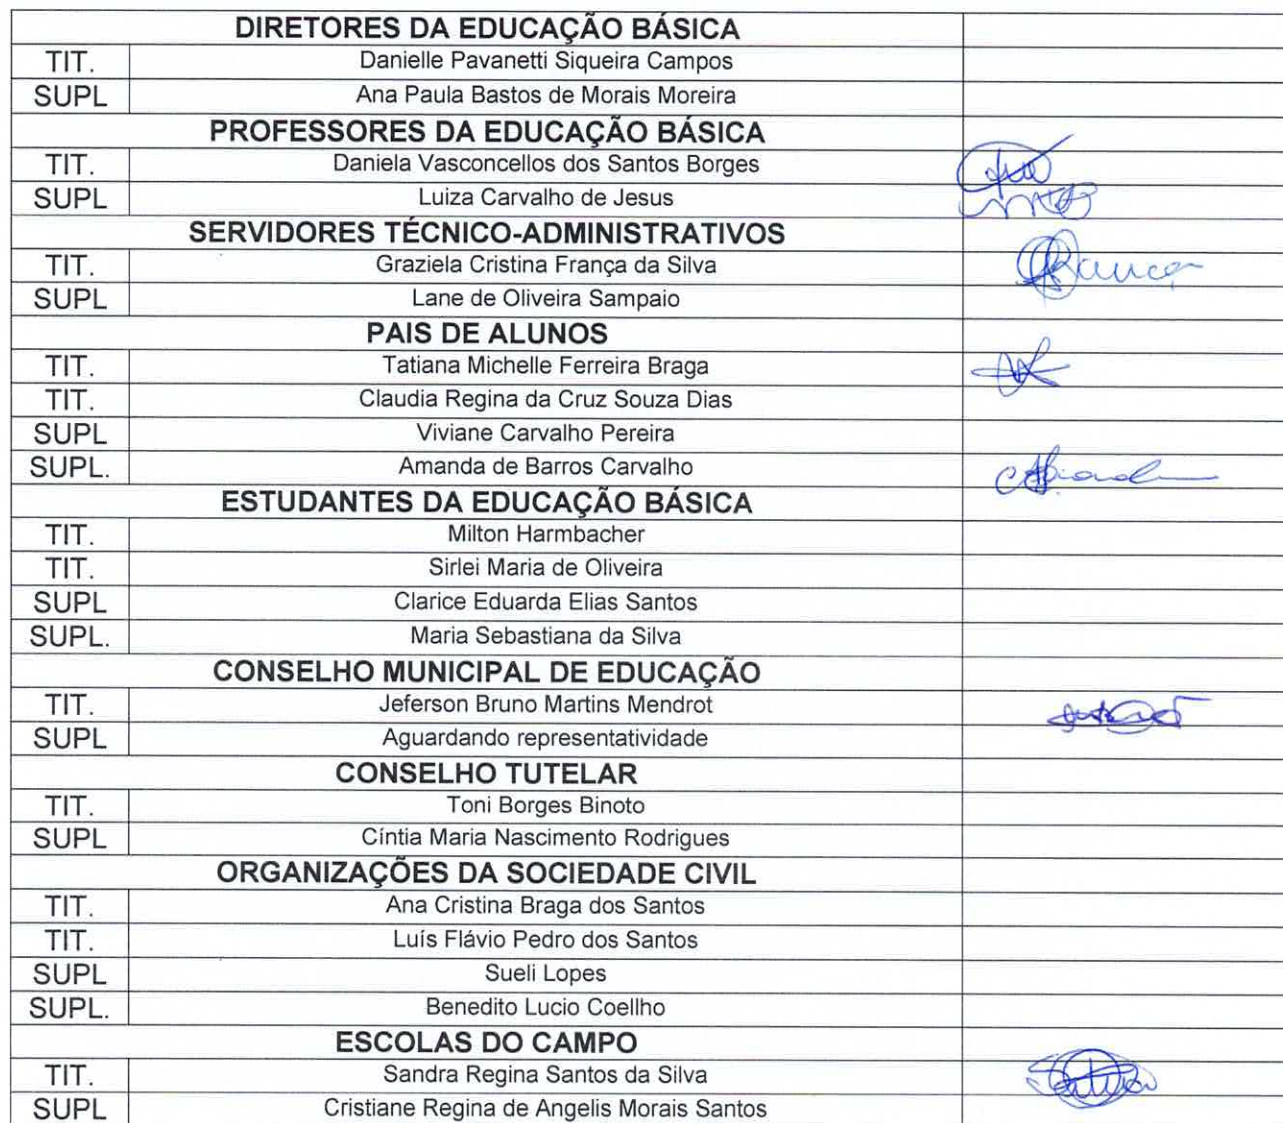 DIRETORES DA EDUCAÇÃO BÁSICA
TIT. Danielle Pavanetti Siqueira Campos
SUPL Ana Paula Bastos de Morais Moreira
PROFESSORES DA EDUCAÇÃO BÁSICA
TIT. Daniela Vasconcellos dos Santos Borges
SUPL Luiza Carvalho de Jesus
SERVIDORES TÉCNICO-ADMINISTRATIVOS
TIT. Graziela Cristina França da Silva
SUPL Lane de Oliveira Sampaio
PAIS DE ALUNOS
TIT. Tatiana Michelle Ferreira Braga
TIT. Claudia Regina da Cruz Souza Dias
SUPL Viviane Carvalho Pereira
SUPL. Amanda de Barros Carvalho
ESTUDANTES DA EDUCAÇÃO BÁSICA
TIT. Milton Harmbacher
TIT. Sirlei Maria de Oliveira
SUPL Clarice Eduarda Elias Santos
SUPL. Maria Sebastiana da Silva
CONSELHO MUNICIPAL DE EDUCAÇÃO
TIT. Jeferson Bruno Martins Mendrot
SUPL Aguardando representatividade
CONSELHO TUTELAR
TIT. Toni Borges Binoto
SUPL Cíntia Maria Nascimento Rodrigues
ORGANIZAÇÕES DA SOCIEDADE CIVIL
TIT. Ana Cristina Braga dos Santos
TIT. Luís Flávio Pedro dos Santos
SUPL Sueli Lopes
SUPL. Benedito Lucio Coellho
ESCOLAS DO CAMPO
TIT. Sandra Regina Santos da Silva
SUPL Cristiane Regina de Angelis Morais Santos